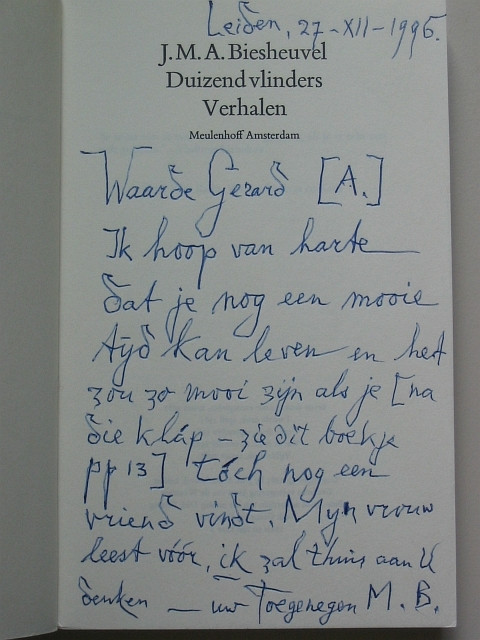 Leiden, 27-XII-1996.
J.M.A. Biesheuvel
Duizend vlinders
Verhalen
Meulenhoff Amsterdam
Waarde Gerard [A.]
Ik hoop van harte
dat je nog een mooie
tijd kan leven en het
zou zo mooi zijn als je [na
die kláp – zie dit boekje
pp 13] tóch nog een
vriend vindt. Mijn vrouw
leest vóór, ik zal thuis aan U
denken — uw Toegenegen M. B.